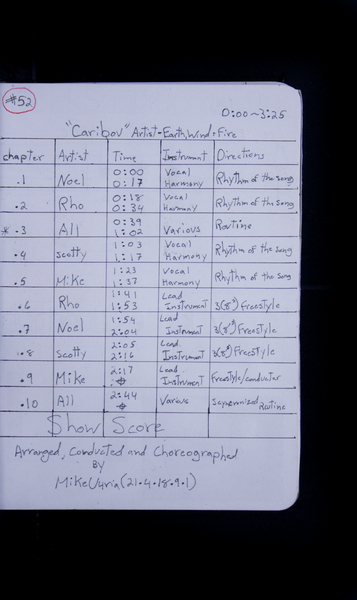 #52
0:00~3:25
"Caribou" Artist-Earth, Wind & Fire
chapter Artist Time Instrument Directions
.1 Noel 0:00 0:17 Vocal Harmony Rhythm of the song
.2 Rho 0:18 0:34 Vocal Harmony Rhythm of the song
* .3 All 0:39 1:02 Various Routine
.4 Scotty 1:03 1:17 Vocal Harmony Rhythm of the song
.5 Mike 1:23 1:37 Vocal Harmony Rhythm of the song
.6 Rho 1:41 1:53 Lead Instrument Freestyle
.7 Noel 1:54 2:04 Lead Instrument Freestyle
.8 Scotty 2:05 2:16 Lead Instrument Freestyle
.9 Mike 2:17 Lead Instrument Freestyle/conductor
.10 All 2:44 Various Synchronized Routine
Show Score
Arranged, Conducted and Choreographed
By
Mike (21.4.18.9.1)